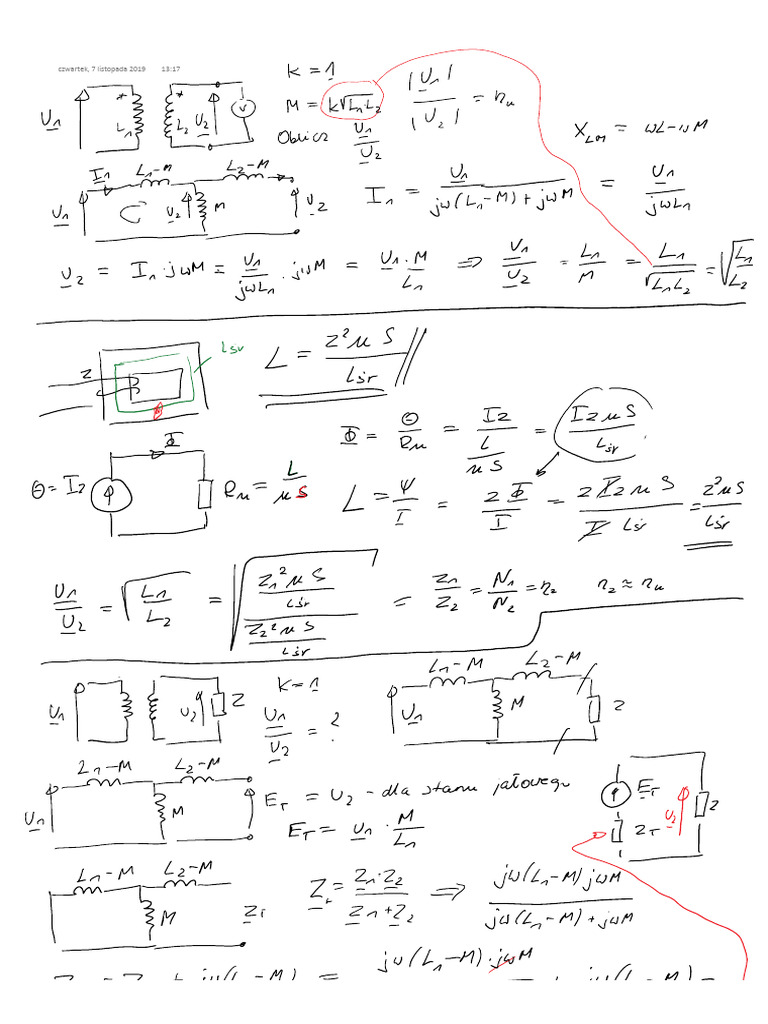 czwartek, 7 listopada 2019 13:17
K = 1
M = k√(L₁·L₂)
|U₁| / |U₂| = nᵤ
Oblicz U₁/U₂
U₁ * * L₁ L₂ U₂ V
X_LM = ωL-ωM
I₁ L₁-M L₂-M
U₁ U₂ M U₂
I₁ = U₁ / (jω(L₁-M)+jωM) = U₁ / jωL₁
U₂ = I₁·jωM = U₁/jωL₁ · jωM = U₁·M/L₁ ⇒ U₁/U₂ = L₁/M = L₁/√(L₁L₂) = √(L₁/L₂)
z Lśr
L = z²μS / Lśr
Φ = Θ/Rμ = Iz / (L/μS) = IzμS / Lśr
Φ
Θ = Iz Rμ = L/μS
L = Ψ/I = zΦ/I = zIzμS / I Lśr = z²μS / Lśr
U₁/U₂ = √(L₁/L₂) = √((z₁²μS/Lśr) / (z₂²μS/Lśr)) = z₁/z₂ = N₁/N₂ = n₂ n₂ ≈ nᵤ
K = 1
U₁ U₂ Z
U₁/U₂ = ?
L₁-M L₂-M
U₁ M Z
L₁-M L₂-M
U₁ M
E_T = U₂ - dla stanu jałowego
E_T = U₁ · M/L₁
E_T U₂ Z
Z_T
L₁-M L₂-M
M Z_T
Z_T = Z₁·Z₂ / (Z₁+Z₂) ⇒ jω(L₁-M)jωM / (jω(L₁-M)+jωM)
jω(L₁-M)·jωM